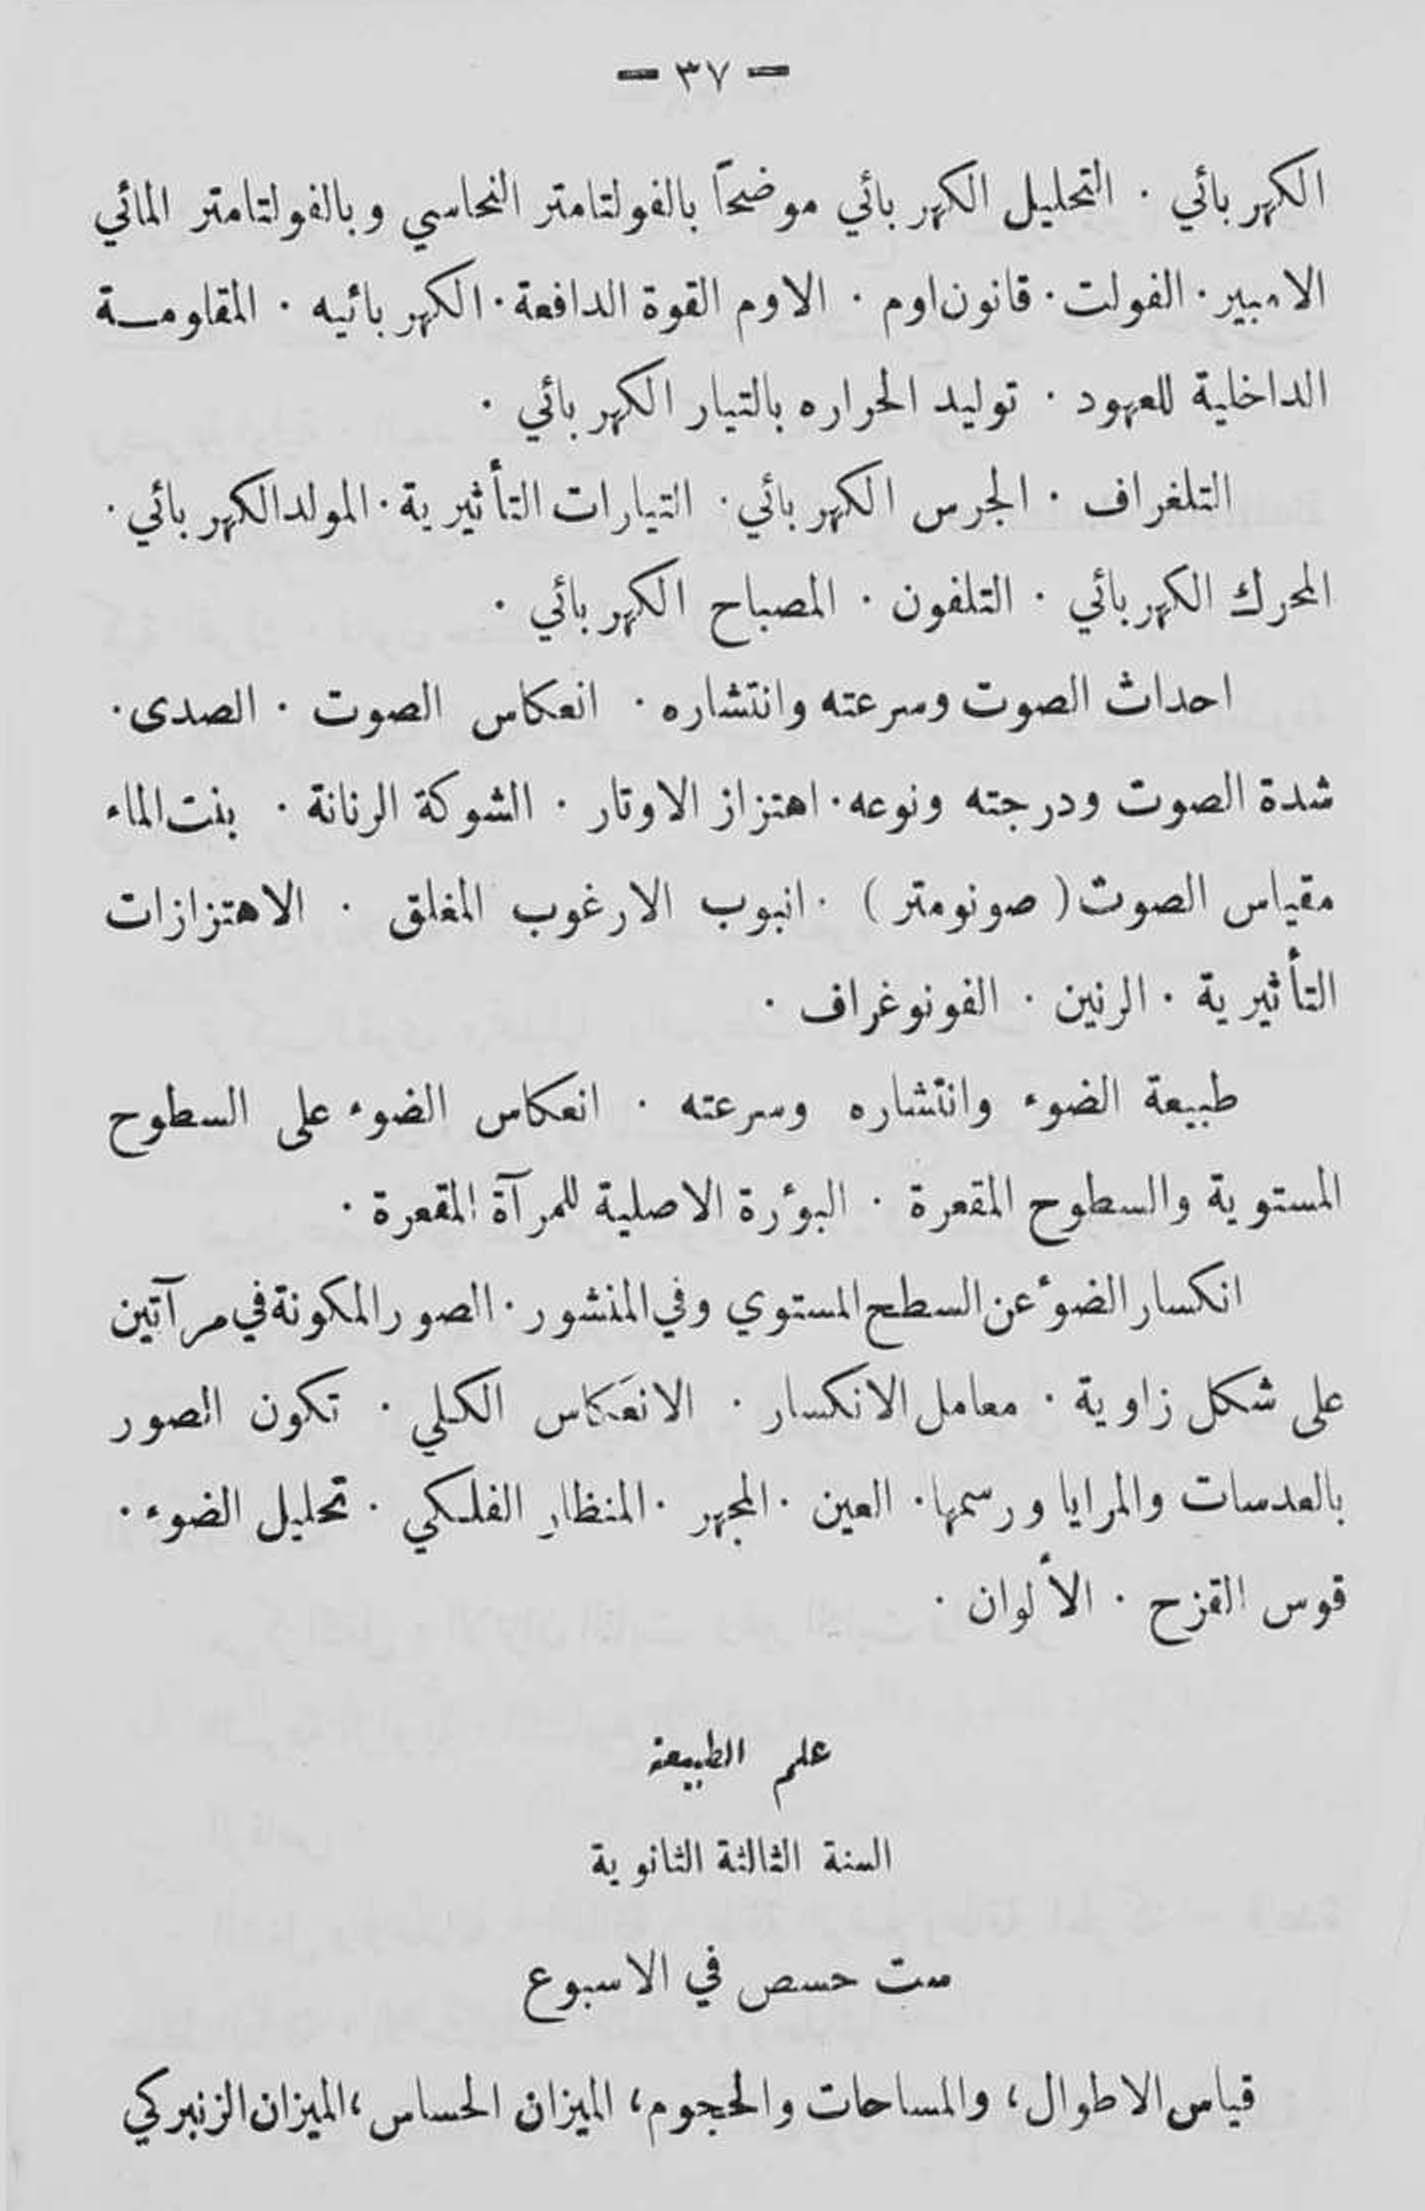 — ٣٧ —
الكهربائي . التحليل الكهربائي موضحاً بالفولتامتر النحاسي وبالفولتامتر المائي
الامبير . الفولت . قانون اوم . الاوم القوة الدافعة . الكهربائيه . المقاومة
الداخلية للعهود . توليد الحراره بالتيار الكهربائي .
التلغراف . الجرس الكهربائي . التيارات التأثيرية . المولد الكهربائي .
المحرك الكهربائي . التلفون . المصباح الكهربائي .
احداث الصوت وسرعته وانتشاره . انعكاس الصوت . الصدى .
شدة الصوت ودرجته ونوعه . اهتزاز الاوتار . الشوكة الرنانة . بنت الماء
مقياس الصوت ( صونومتر ) . انبوب الارغوب المغلق . الاهتزازات
التأثيرية . الرنين . الفونوغراف .
طبيعة الضوء وانتشاره وسرعته . انعكاس الضوء على السطوح
المستوية والسطوح المقعرة . البؤرة الاصلية للمرآة المقعرة .
انكسار الضوء عن السطح المستوي وفي المنشور . الصور المكونة في مرآتين
على شكل زاوية . معامل الانكسار . الانعكاس الكلي . تكون الصور
بالعدسات والمرايا ورسمها . العين . المجهر . المنظار الفلكي . تحليل الضوء .
قوس القزح . الألوان .
علم الطبيعة
السنة الثالثة الثانوية
ست حسص في الاسبوع
قياس الاطوال ، والمساحات والحجوم ، الميزان الحساس ، الميزان الزنبركي